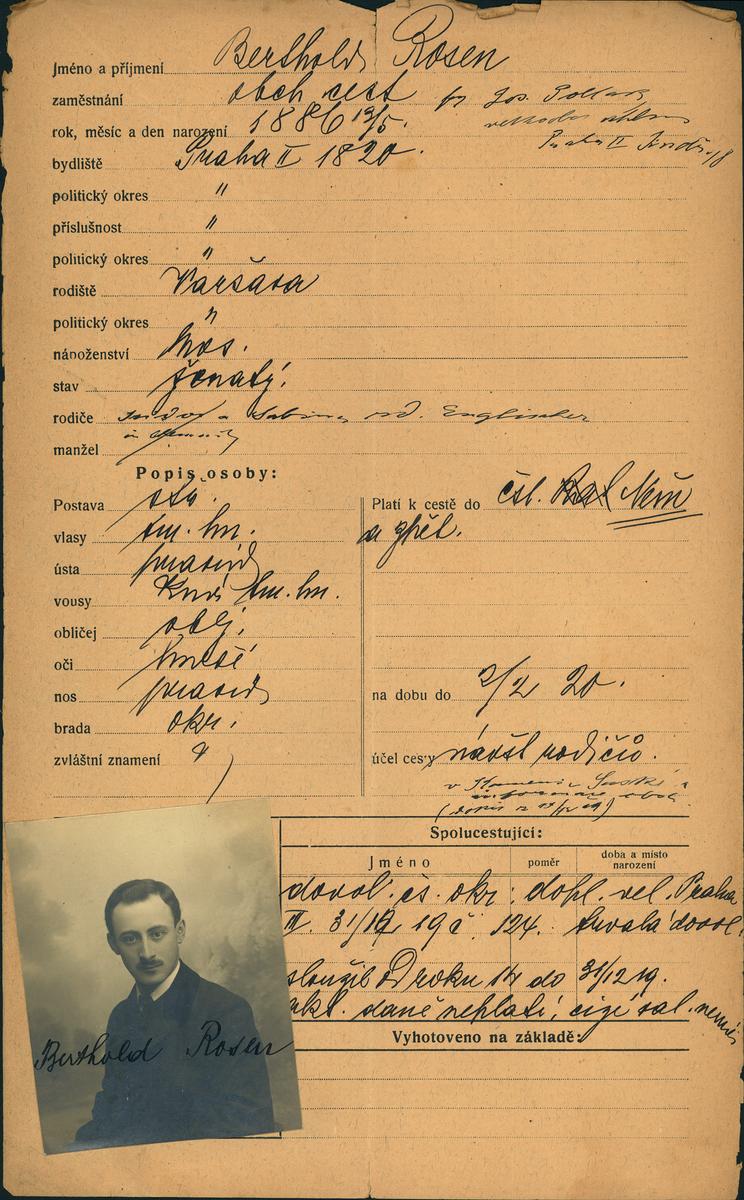 Jméno a příjmení Berthold Rosen
zaměstnání obch. cest. Jos.
rok, měsíc a den narození 1886 12/5.
Praha II
bydliště Praha II 1820.
politický okres "
příslušnost "
politický okres "
rodiště Varšava
politický okres "
náboženství mos.
stav ženatý.
rodiče a Sabina roz. Englischer
manžel
Popis osoby:
Postava stř.
vlasy tm. hn.
ústa pravid
vousy knír tm. hn.
obličej obl.
oči hnědé
nos pravid
brada okr.
zvláštní znamení
Platí k cestě do čsl. Něm
a zpět.
na dobu do 2/2 20.
účel cesty návšt. rodičů.
v
Spolucestující:
Jméno
poměr
doba a místo
narození
dovol. čs. okr. dopl. vel. Praha
31/12 19 č. 124. trvalá dovol.
sloužil roku 14 do 31/12 19.
daně neplatí,
Vyhotoveno na základě:
Berthold Rosen